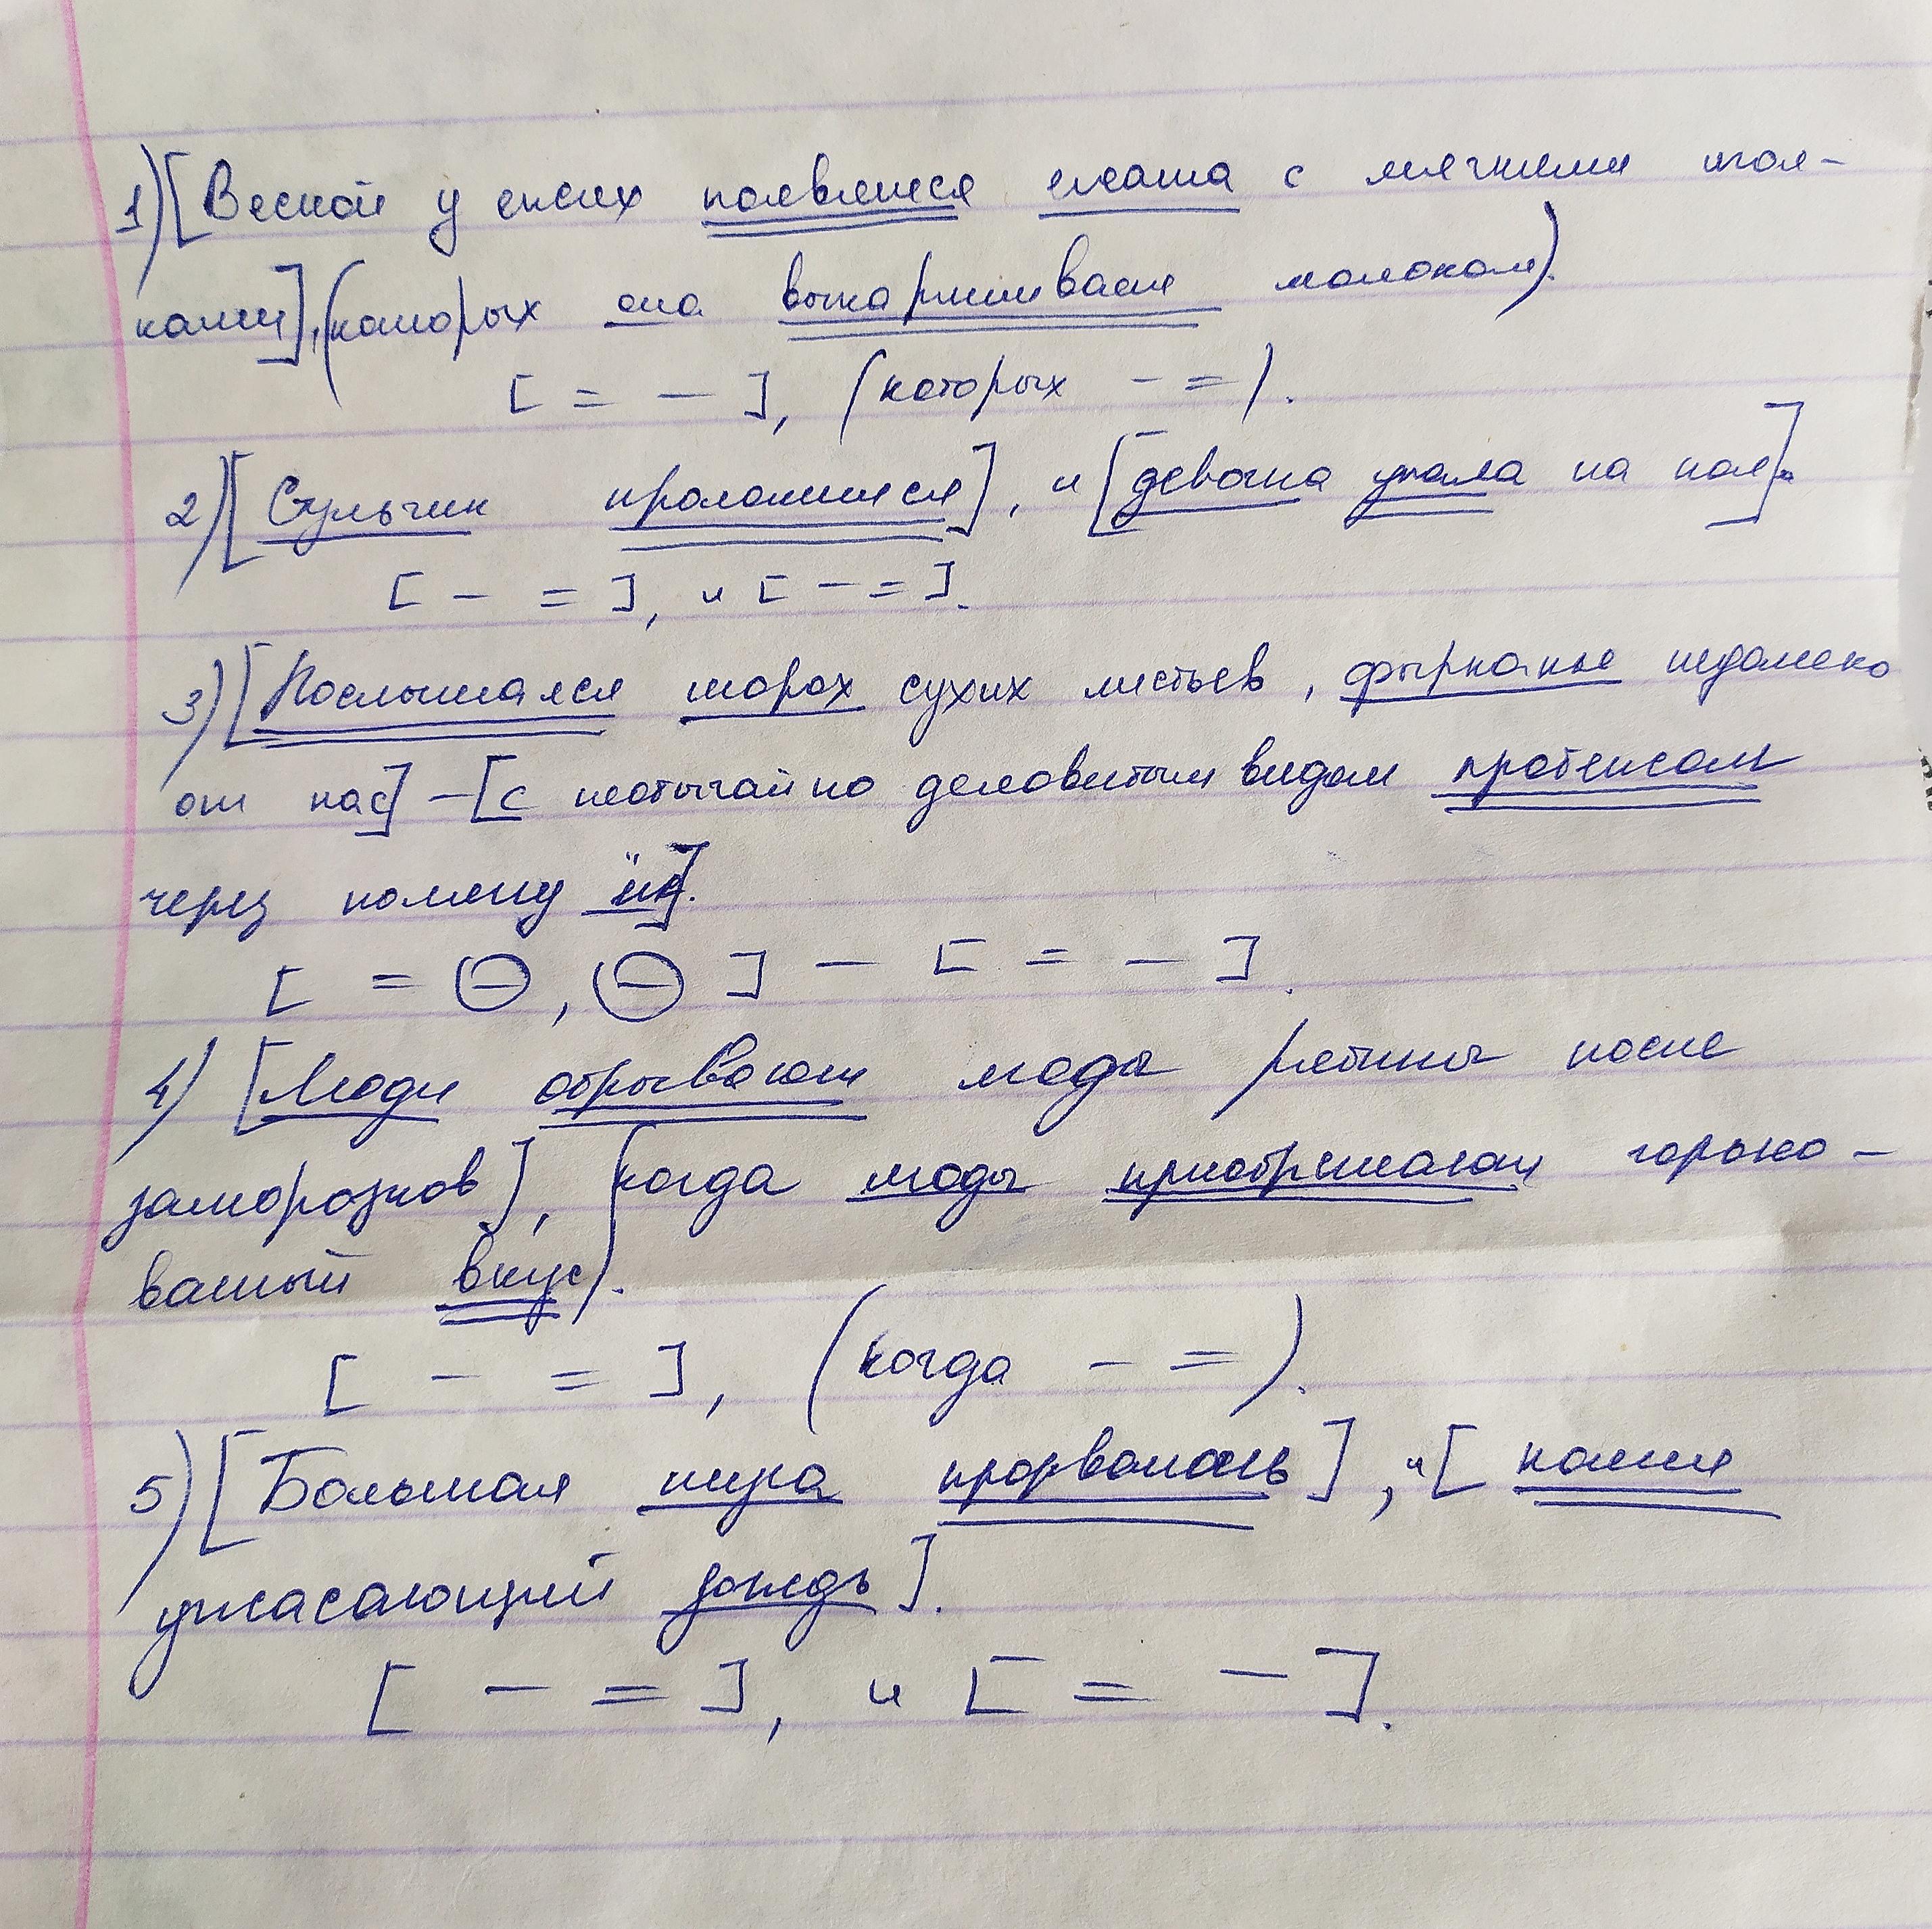 1) [Весной у ежих появляются ежата с мягкими игол-
ками], (которых она выкармливает молоком).
[ = – ], (которых – = ).
2) [Стульчик проломился], и [девочка упала на пол].
[ – = ], и [ – = ].
3) [Послышался шорох сухих листьев, фырканье недалеко
от нас] – [с необычайно деловитым видом пробежал
через поляну ёж].
[ = ⊖, ⊖ ] – [ = – ].
4) [Люди обрывают плоды рябины после
заморозков], (когда плоды приобретают горько-
ватый вкус).
[ – = ], (когда – = ).
5) [Большая туча прорвалась], и [полил
ужасающий дождь].
[ – = ], и [ = – ].